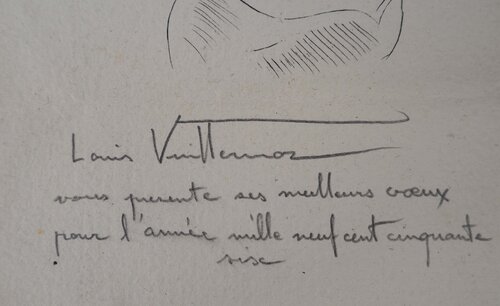 Louis Vuillermoz
vous presente ses meilleurs vœux
pour l'année mille neuf cent cinquante
six